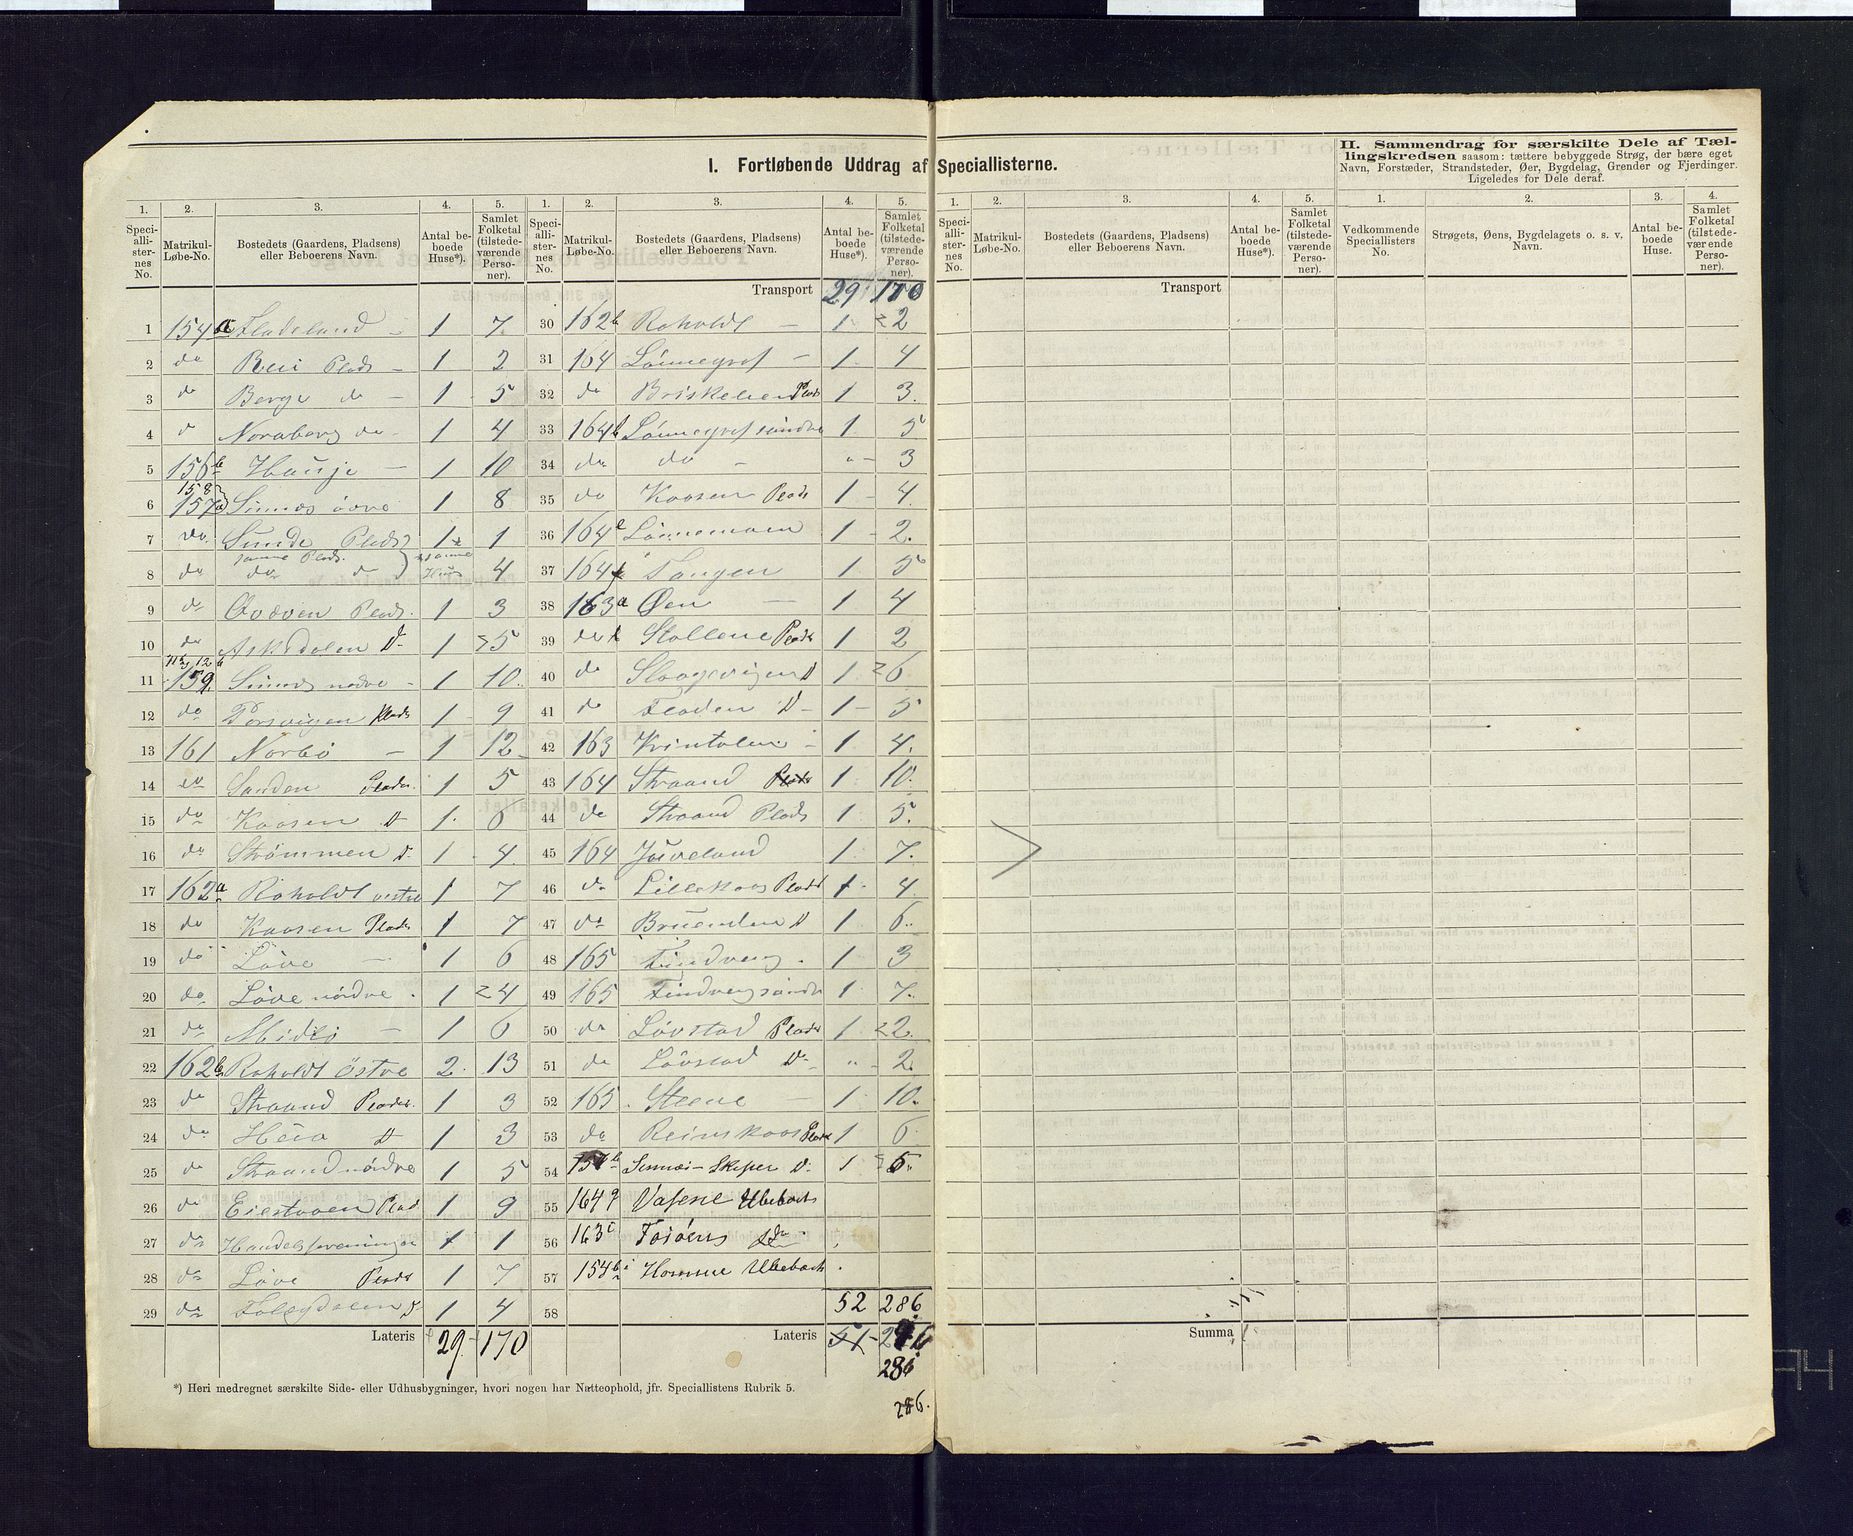 I. Fortløbende Uddrag af Speciallisterne.
II. Sammendrag for særskilte Dele af Tællingskredsen saasom: tættere bebyggede Strøg, der bære eget
Navn, Forstæder, Strandsteder, Øer, Bygdelag, Grender og Fjerdinger.
Ligeledes for Dele deraf.
1. 2. 3. 4. 5. 1. 2. 3. 4. 5. 1. 2. 3. 4. 5. 1. 2. 3. 4.
Speciallisternes No. Matrikul-Løbe-No. Bostedets (Gaardens, Pladsens) eller Beboerens Navn. Antal beboede Huse*). Samlet Folketal (tilstedeværende Personer).
Speciallisternes No. Matrikul-Løbe-No. Bostedets (Gaardens, Pladsens) eller Beboerens Navn. Antal beboede Huse*). Samlet Folketal (tilstedeværende Personer).
Speciallisternes No. Matrikul-Løbe-No. Bostedets (Gaardens, Pladsens) eller Beboerens Navn. Antal beboede Huse*). Samlet Folketal (tilstedeværende Personer).
Vedkommende Speciallisters No. Strøgets, Øens, Bygdelagets o. s. v. Navn. Antal beboede Huse. Samlet Folketal (tilstedeværende Personer).
Transport 29 170
Transport
1 154a Fladeland - 1 7
2 do Rei Plads - 1 2
3 do Berge do - 1 5
4 do Noraberg do - 1 4
5 156b Hauje - 1 10
6 158 157a Sinnes øvre 1 8
7 do Sunde Plads 1 1
8 do samme Plads do do samme Huus 4
9 do Qvæven Plads 1 3
10 do Askedalen D 1 5
11 159 Sinnes nedre - 1 10
12 do Torsvigen Plads 1 9
13 161 Norbø - 1 12
14 do Sanden Plads 1 5
15 do Kaasen D 1 6
16 do Strømmen D 1 4
17 162a Roholdt vestre 1 7
18 do Kaasen Plads 1 7
19 do Løve - 1 6
20 do Løve nordre 1 4
21 do Midbø - 1 6
22 162b Roholdt Østre 2 13
23 do Straand Plads 1 3
24 do Heia D 1 3
25 do Straand nordre 1 5
26 do Eiestoen Plads 1 9
27 do Handelsforeningen 1 1
28 do Løve Plads 1 7
29 do D 1 4
Lateris 29 170
30 162b Roholdt - 1 2
31 164 Lønnegrof - 1 4
32 do Briskelien Plads 1 3
33 164b Lønnegrof søndre 1 5
34 do do - " 3
35 do Kaasen Plads 1 4
36 164 Lønnemoen 1 2
37 164 Tangen 1 5
38 163a Øen - 1 4
39 do Stollene Plads 1 2
40 do D 1 6
41 do Floden D 1 5
42 163 1 4
43 164 Straand Plads 1 10
44 do Straand Plads 1 5
45 164 Juveland 1 7
46 do Lillekaas Plads 1 4
47 do Bruenden D 1 6
48 165 Findreng 1 3
49 165 Findreng søndre 1 7
50 do Løvstad Plads 1 2
51 do Løvstad D " 2
52 165 Steene 1 10
53 do Reimskaas Plads 1 6
54 Sinnes- D 1 5
55 164g Vasene Ubeboet
56 163c Forøens do
57 154b Homme Ubeboet
58 52 286
Lateris 51 - 286
286
286.
Summa
*) Heri medregnet særskilte Side- eller Udhusbygninger, hvori nogen har Natteophold, jfr. Speciallistens Rubrik 5.